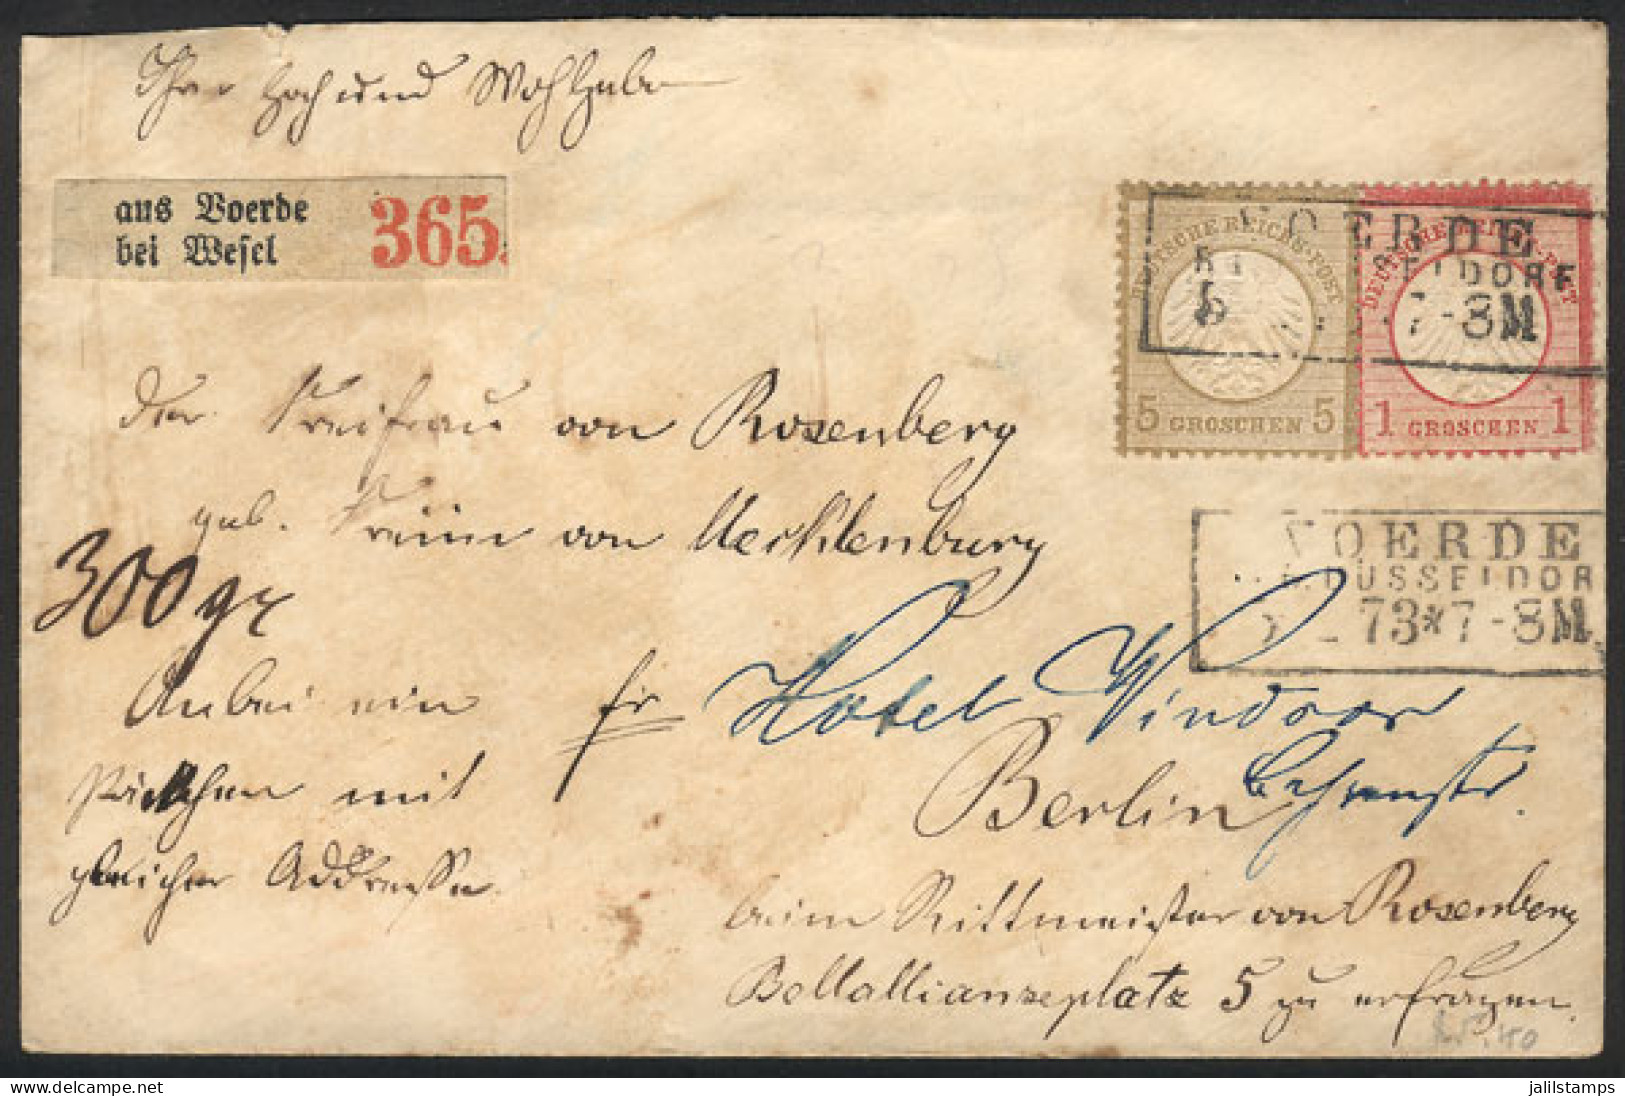 Ihrer Hoch und Wohlgeboren
aus Voerde
bei Wesel
365.
DEUTSCHE REICHS-POST
5 GROSCHEN 5
DEUTSCHE REICHS-POST
1 GROSCHEN 1
VOERDE
SELDORF
7-8M
der Freifrau von Rosenberg
geb. Freiin von Mecklenburg
VOERDE
DÜSSELDOR
73*7-8M.
300 gr
Anbei ein
Päckchen mit
gleicher Addresse.
fr
Hotel Windsor
Berlin Behrenstr.
beim Rittmeister von Rosenberg
Bellallianzeplatz 5 zu erfragen.
jalilstamps